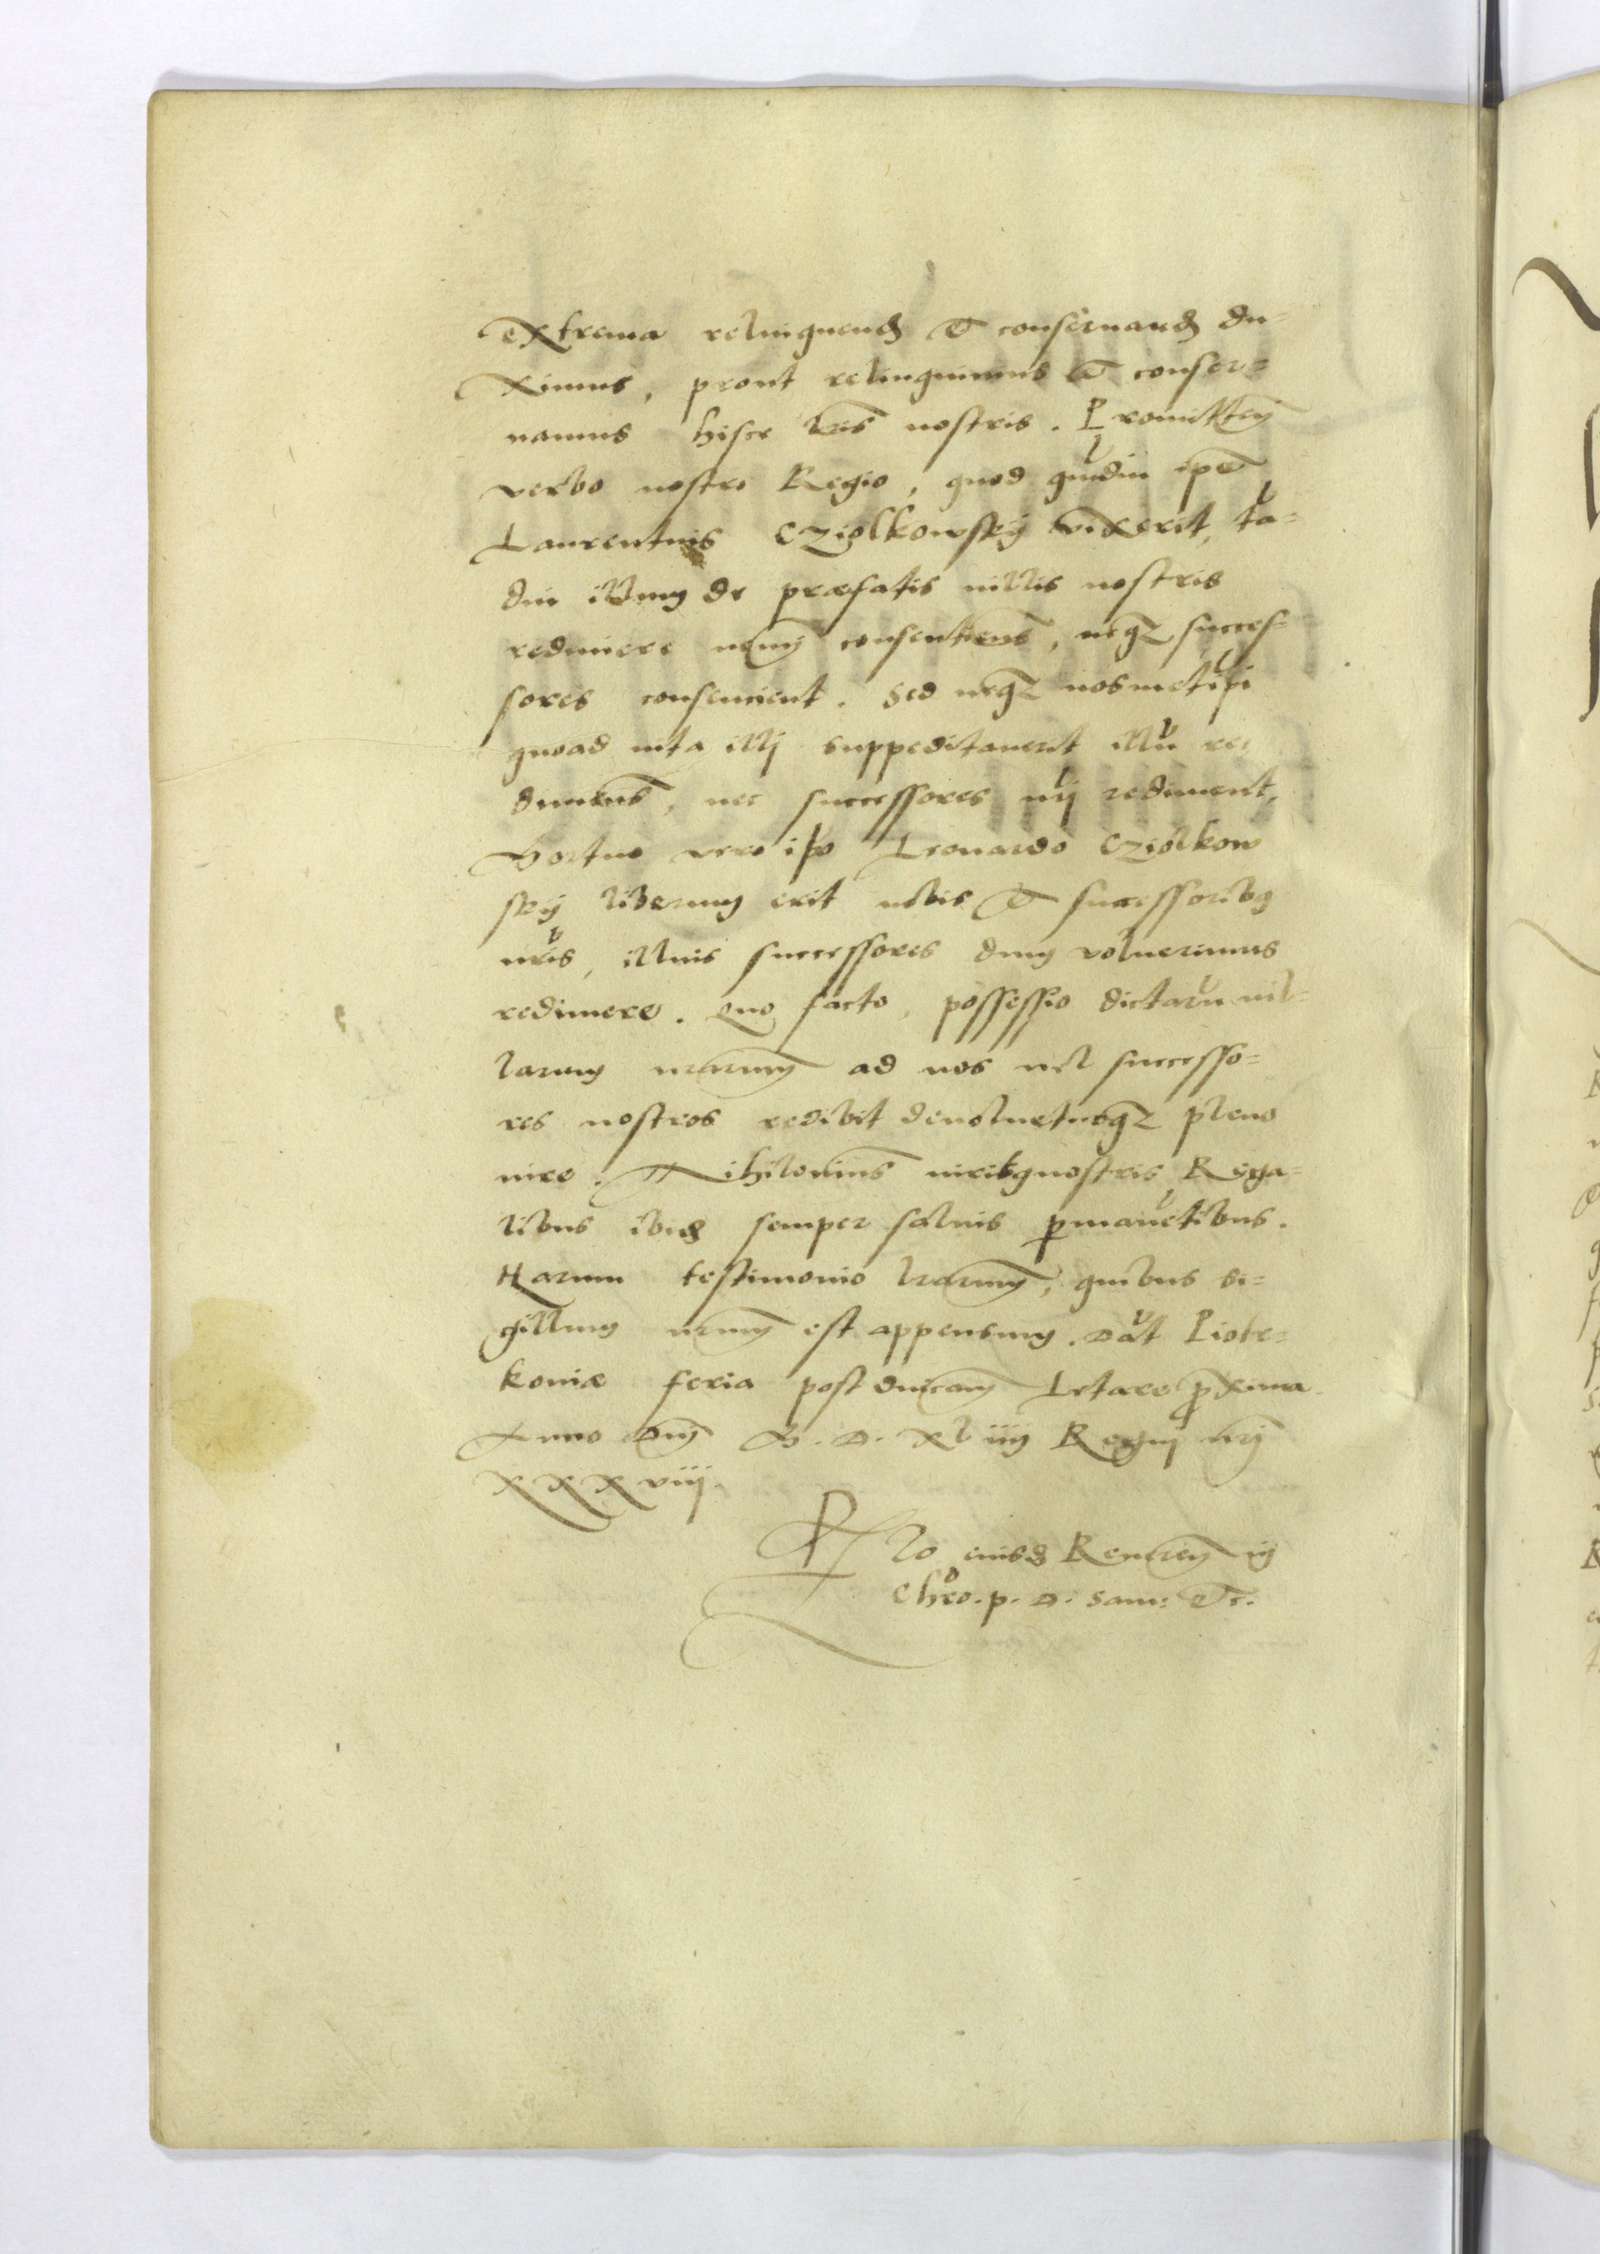 extrema relinquend & conseruand du-
ximus, prout relinquimus & conser-
uamus hisce lris nostris. Promitten
verbo nostro Regio, quod qudiu ipe
Laurentius Cziolkowsky vixerit, ta-
diu illum de præfatis uillis nostris
redimere nemj consentiems, neqz succes-
sores consencient. Sed neqz nosmetipi
quoad uita illj suppeditauerit illu re-
dimems, nec successores nrj rediment,
Mortuo vero ipo Leonardo Cziolkow
sky liberum erit nobis & successoribus
nris, illius successores dum voluerimus
redimere. Quo facto, possessio dictaru uil-
larum nrarum ad nos uel successo-
res nostros redibit deuolueturqz pleno
iure. Nihilomins iuribus nostris Rega-
libus ibid semper saluis pmanetibus.
Harum testimonio lrarum, quibus si-
gillum nrum est appensum. Dat Piotr-
kouiæ feria post dnicam Letare pxima
Anno Dnj M.D.XLiiij Regnj nrj
XXXviij.
Rlo eiusd Reueren
Chro. p. D. Sam: &c.